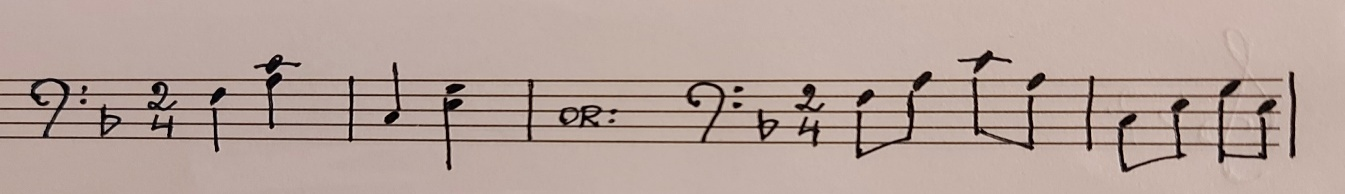 2 4 OR: 2 4